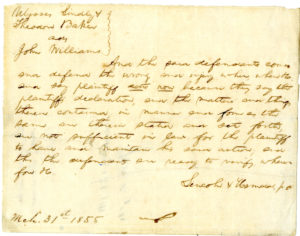 Ulysses Lindly &
Theodore Baker
ads
John Williams
And the said defendants come
and defend the wrong and injury when &c
and say plaintiff actio non because they say the
plaintiffs declaration, and the matters and things
therein contained in manner and form as the
same are therein stated and set forth,
are not sufficient in law for the plaintiff
to have and maintain his said action, and
this the defendants are ready to verify, wherefore
&c.
Lincoln & Herndon, p.d
Mch. 31st 1855